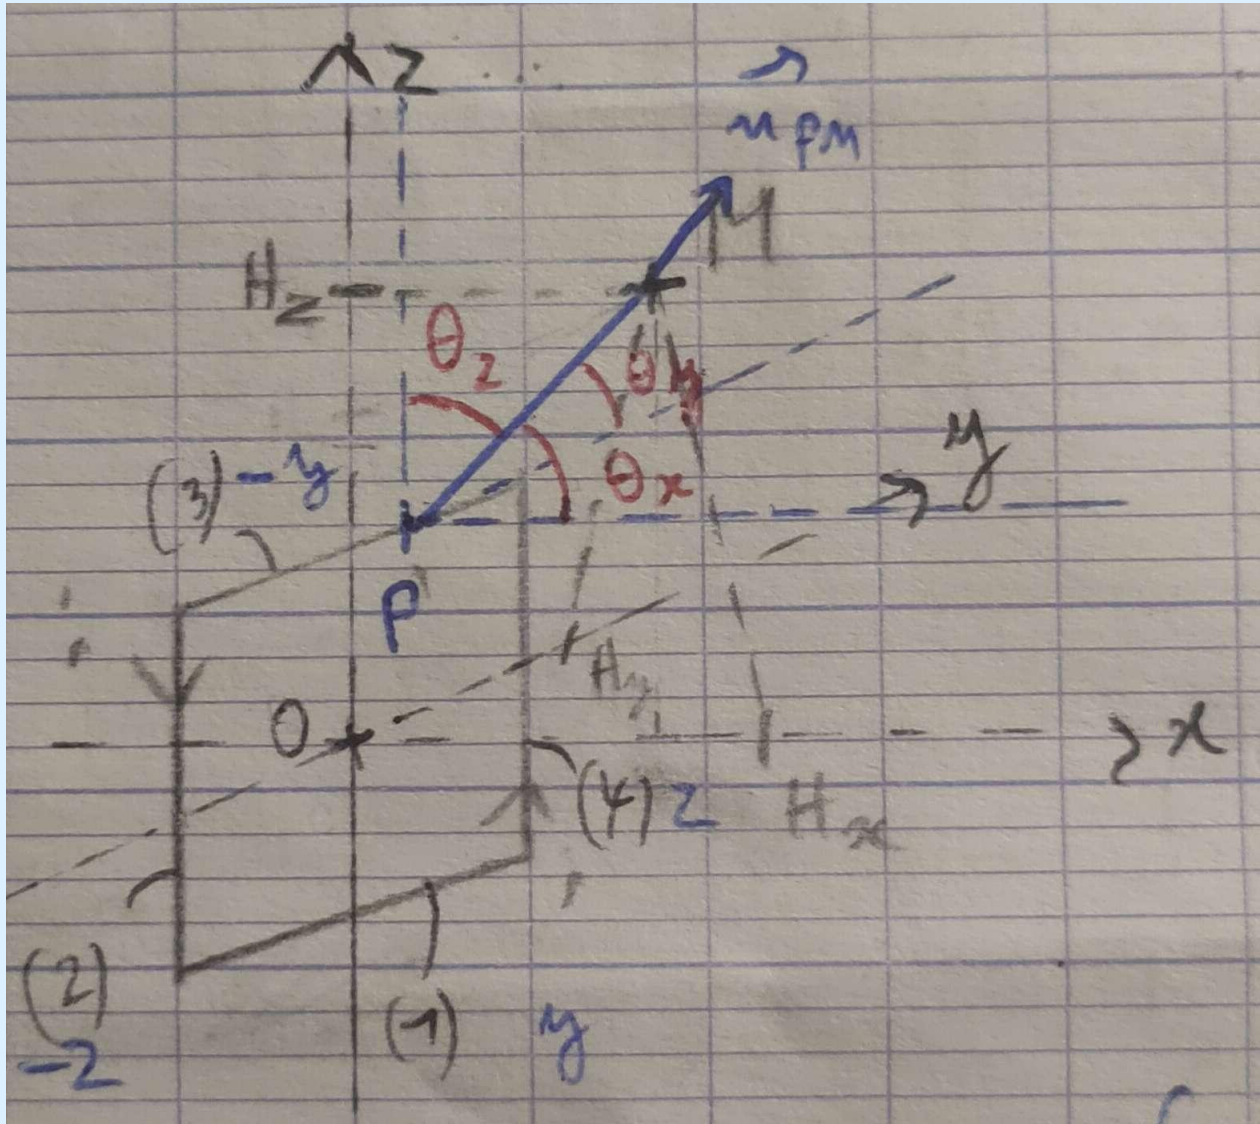 z
u PM
M
Hz
θz
θy
y
(3) -y
θx
P
Hy
O
x
(4) z
Hx
(2)
-z
(1) y